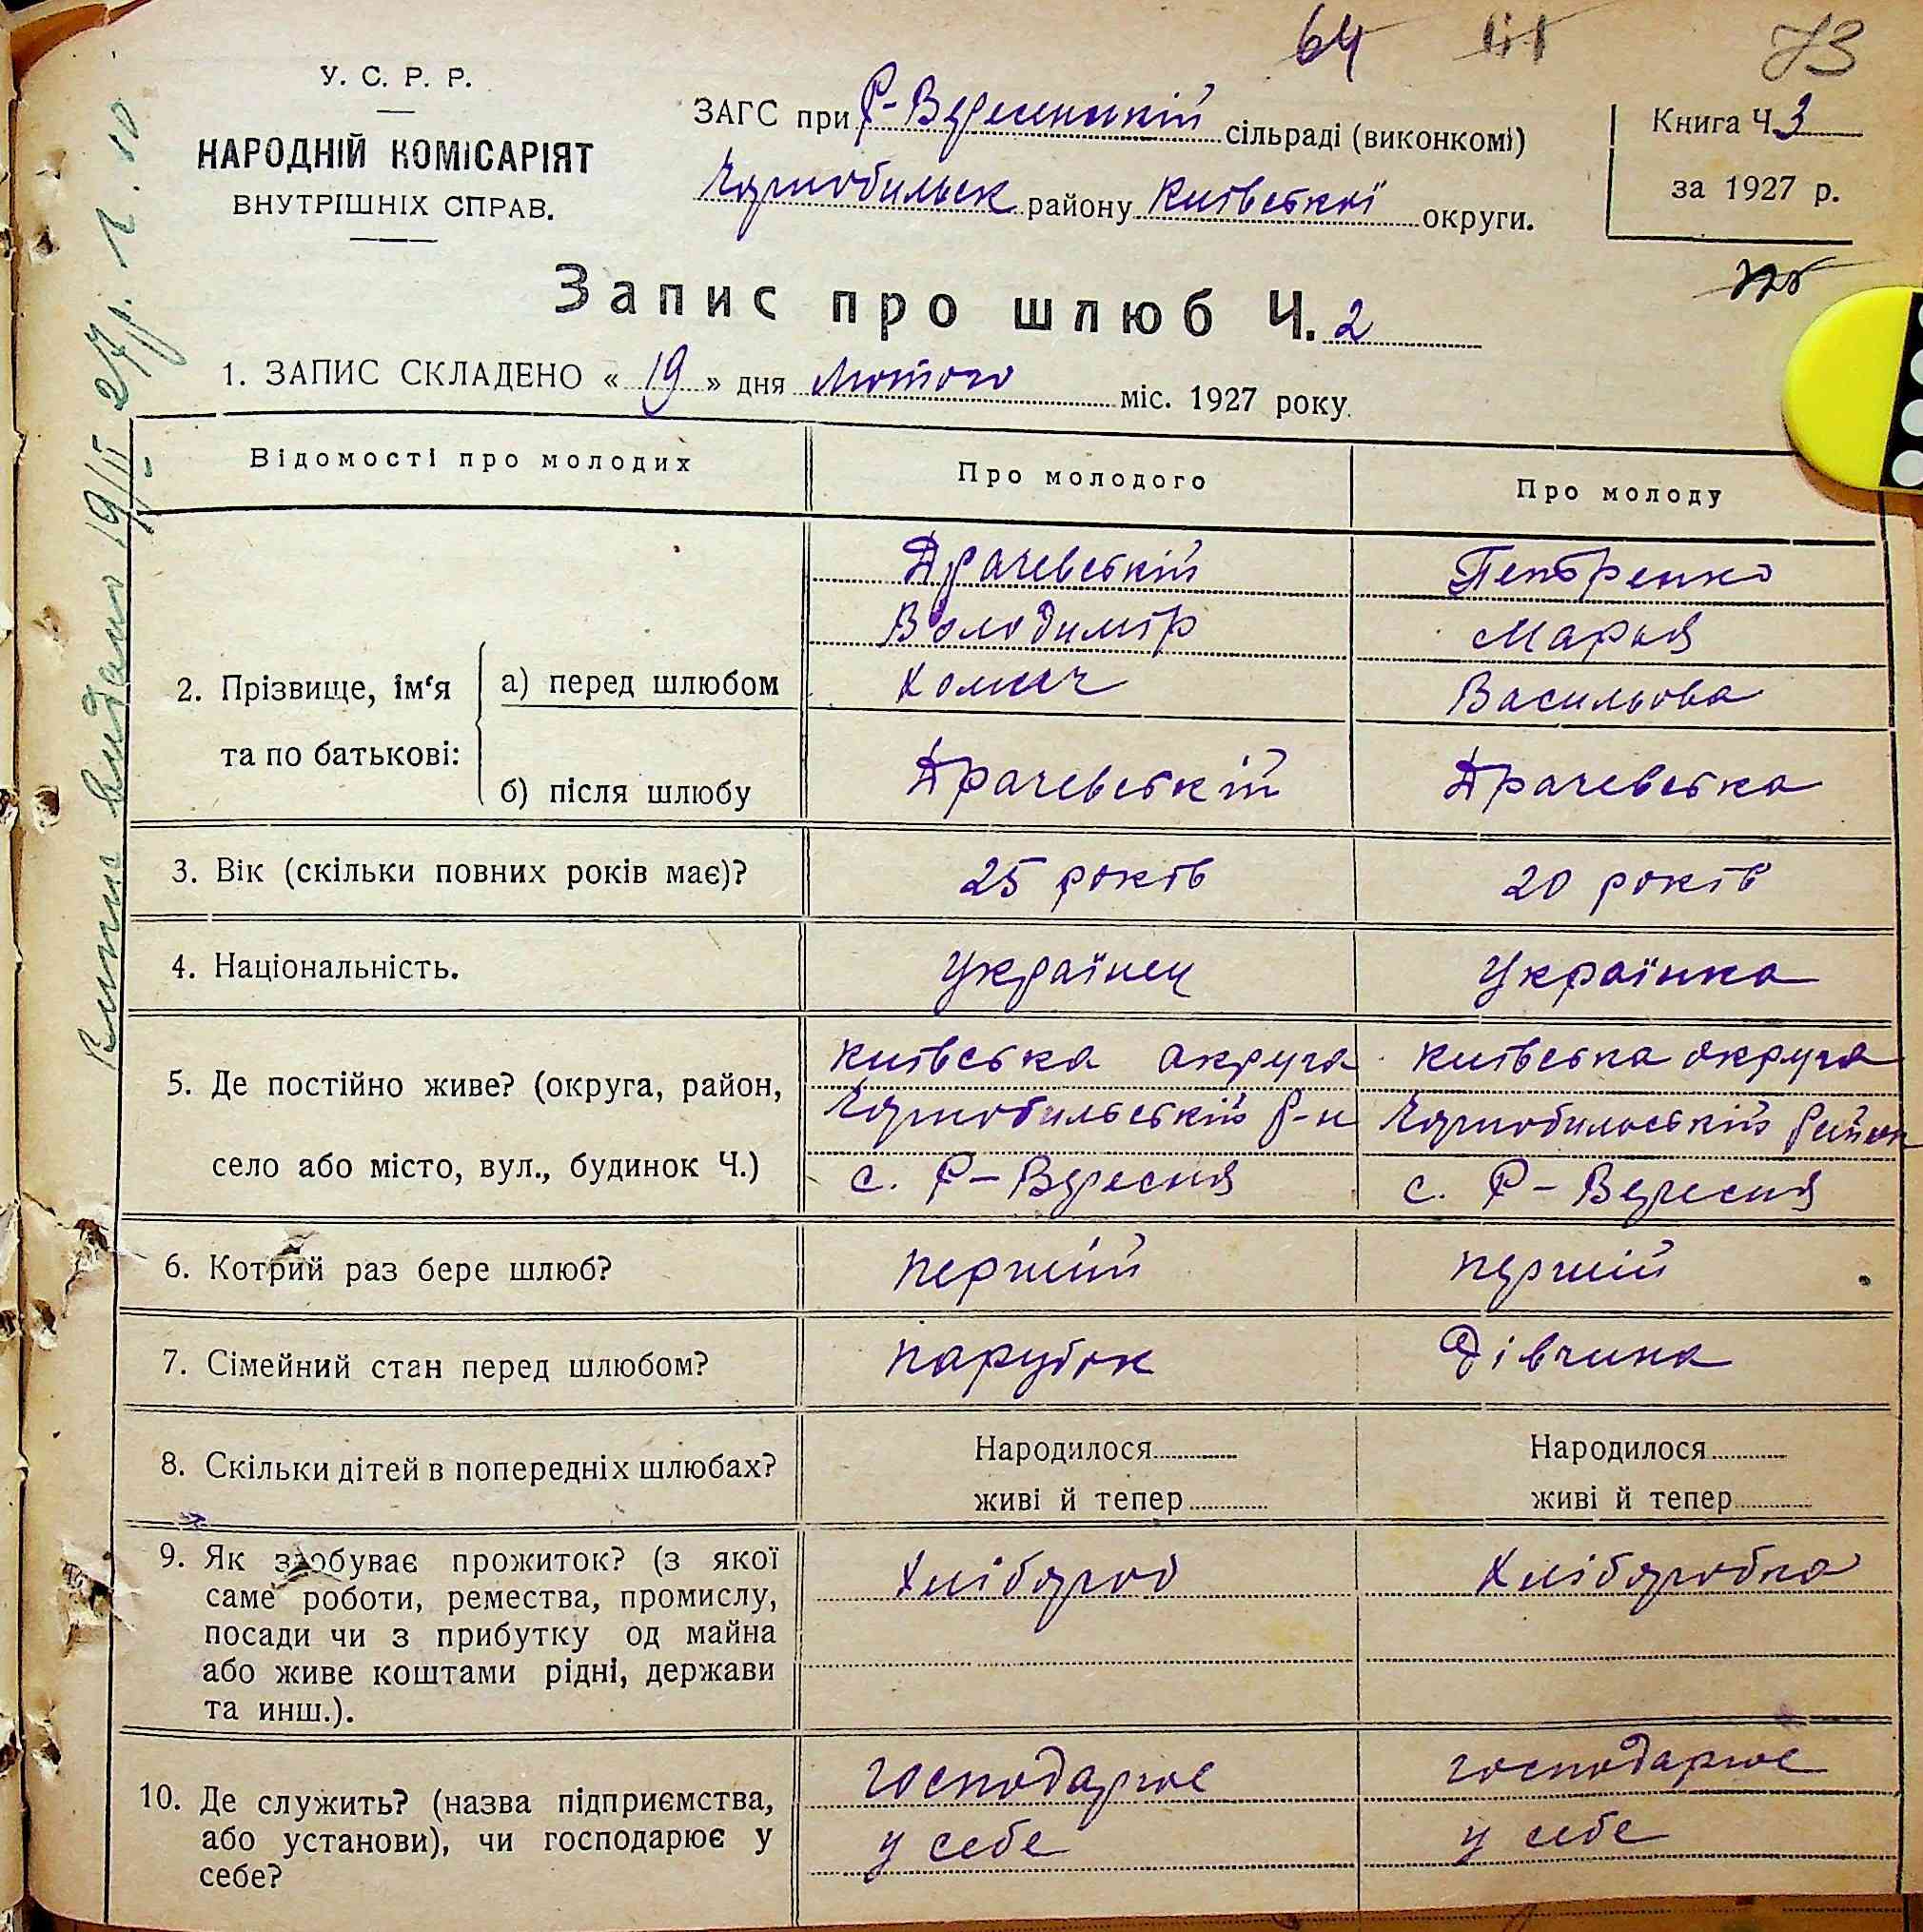 64 73
У. С. Р. Р.
НАРОДНІЙ КОМІСАРІЯТ
ВНУТРІШНІХ СПРАВ.
ЗАГС при Р-Вересенській сільраді (виконкомі)
Чорнобильськ району Київської округи.
Книга Ч. 3
за 1927 р.
Запис про шлюб Ч. 2
1. ЗАПИС СКЛАДЕНО « 19 » дня Лютого міс. 1927 року.
Відомості про молодих Про молодого Про молоду
2. Прізвище, ім‘я та по батькові:
а) перед шлюбом
Драчевській Петренко
Володимір Марья
Хомич Васильова
б) після шлюбу Драчевській Драчевська
3. Вік (скільки повних років має)? 25 років 20 років
4. Національність. Українец Українка
5. Де постійно живе? (округа, район, село або місто, вул., будинок Ч.)
Київська округа Київська округа
Чорнобильській р-н Чорнобильській район
с. Р-Вересня с. Р-Вересня
6. Котрий раз бере шлюб? перший перший
7. Сімейний стан перед шлюбом? парубок Дівчина
8. Скільки дітей в попередніх шлюбах? Народилося Народилося
живі й тепер живі й тепер
9. Як здобуває прожиток? (з якої
саме роботи, ремества, промислу,
посади чи з прибутку од майна
або живе коштами рідні, держави
та инш.).
Хлібороб Хліборобка
10. Де служить? (назва підприємства,
або установи), чи господарює у
себе?
господарює господарює
у себе у себе
видано 19/II 27 р.